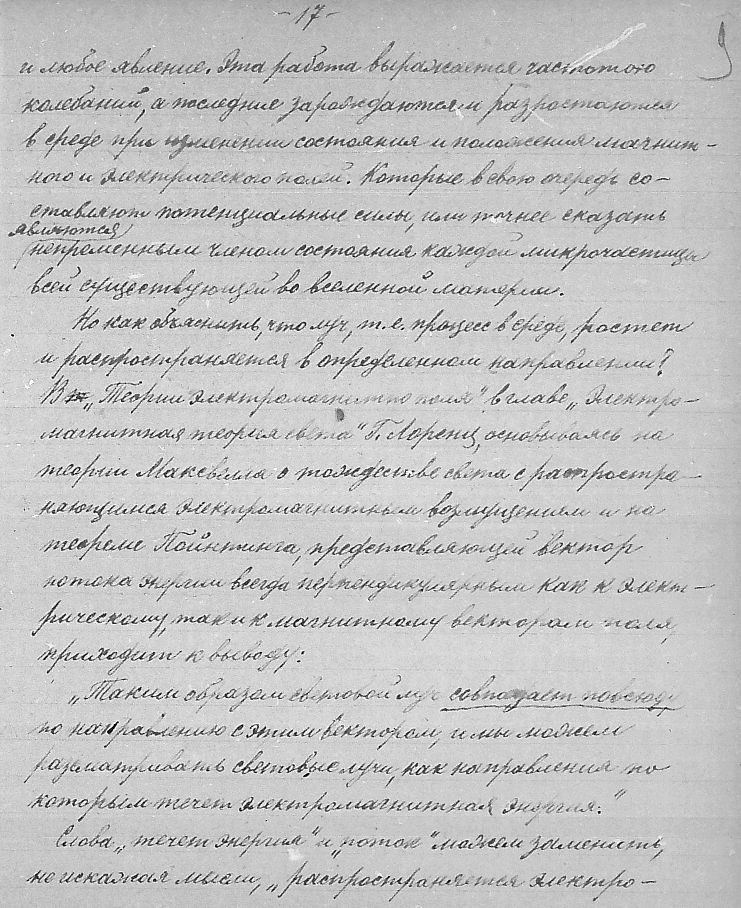 - 17 -
9
и любое явление. Эта работа выражается частотою
колебаний, а последние зарождаются и разростаются
в среде при изменении состояния и положения магнит-
ного и электрического полей. Которые в свою очередь со-
ставляют потенциальные силы, или точнее сказать
являются
непременным членом состояния каждой микрочастицы
всей существующей во вселенной материи.
Но как объяснить, что луч, т.е. процесс в среде, ростет
и распространяется в определенном направлении?
В „Теории электромагнитно поля" в главе „Электро-
магнитная теория света" Г. Лоренц, основываясь на
теории Максвелла о тождестве света с распростра-
няющимся электромагнитным возмущением и на
теореме Пойнтинга, представляющей вектор
потока энергии всегда перпендикулярным как к элект-
рическому, так и к магнитному векторам поля,
приходит к выводу:
„Таким образом световой луч совпадает повсюду
по направлению с этим вектором, и мы можем
разсматривать световые лучи, как направления по
которым течет электромагнитная энергия."
Слова „течет энергия" и „поток" можем заменить,
не искажая мысли, „распространяется электро-